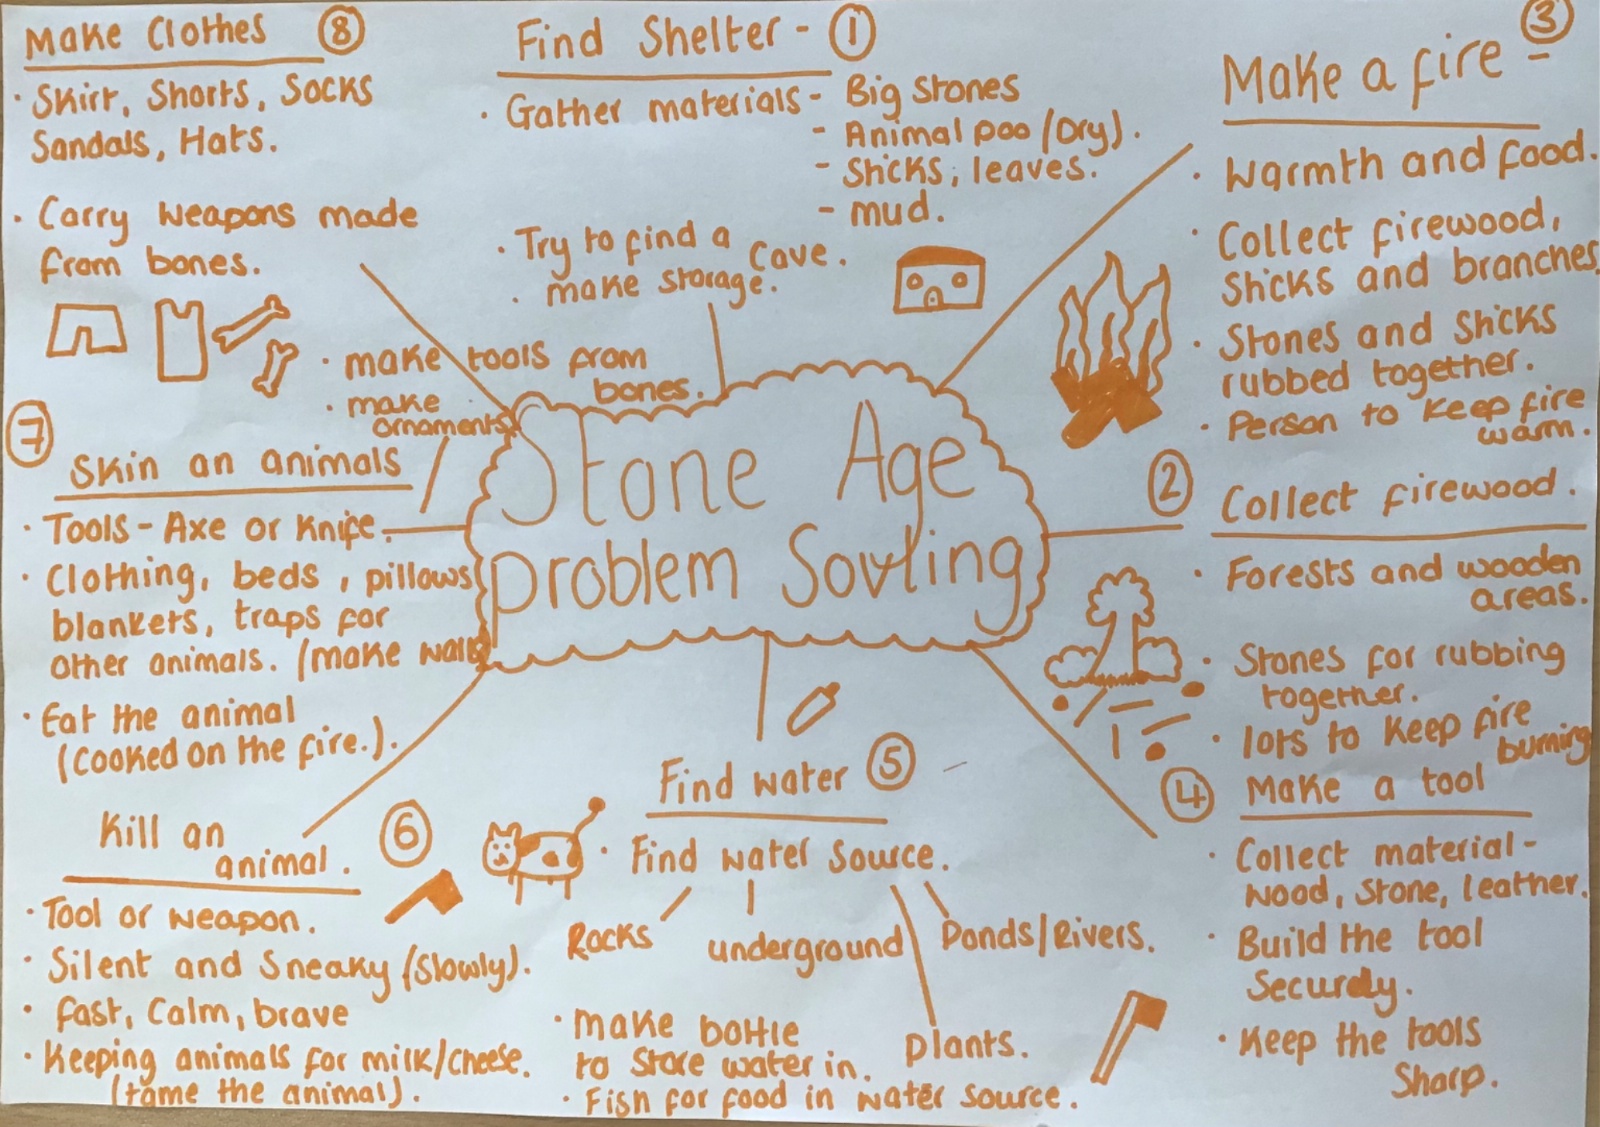 Make Clothes 8
· Skirt, Shorts, Socks
Sandals, Hats.
· Carry weapons made
from bones.
Find Shelter - 1
· Gather materials - Big Stones
- Animal poo (Dry).
- Sticks, leaves.
- mud.
· Try to find a cave.
· make storage.
3
Make a fire -
· Warmth and food.
· Collect firewood,
Sticks and branches.
· Stones and Sticks
rubbed together.
· Person to keep fire
warm.
2 Collect firewood.
· Forests and wooden
areas.
· Stones for rubbing
together.
· lots to keep fire
burning
4 Make a tool
· Collect material -
wood, stone, leather.
· Build the tool
Securely.
· Keep the tools
Sharp.
Find water 5
· Find water source.
Rocks
underground
Ponds/Rivers.
plants.
· make bottle
to store water in.
· Fish for food in water source.
Kill an
animal. 6
· Tool or weapon.
· Silent and Sneaky (Slowly).
· fast, calm, brave
· Keeping animals for milk/cheese.
(tame the animal).
7
Skin an animals
· Tools - Axe or knife.
· Clothing, beds, pillows
blankets, traps for
other animals. (make walls
· Eat the animal
(cooked on the fire.).
· make tools from
bones.
· make
ornaments
Stone Age
problem Sovling